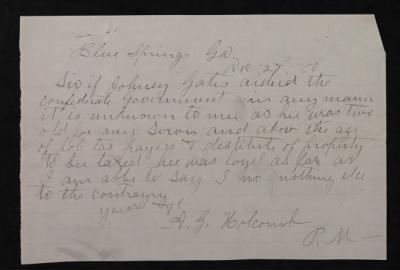 Blue Springs Ga
Dec 27
Sir if Cohney Gates aideid the
confederate Government in any mann
it is unknown to me as he was two
old for any Servic and above the age
of pole tax payers & destitute of property
to be taxed hee was loyel as far as
I am able to say I no nothing else
to the contrary
yours &c
A. G. Holcomb
P. M